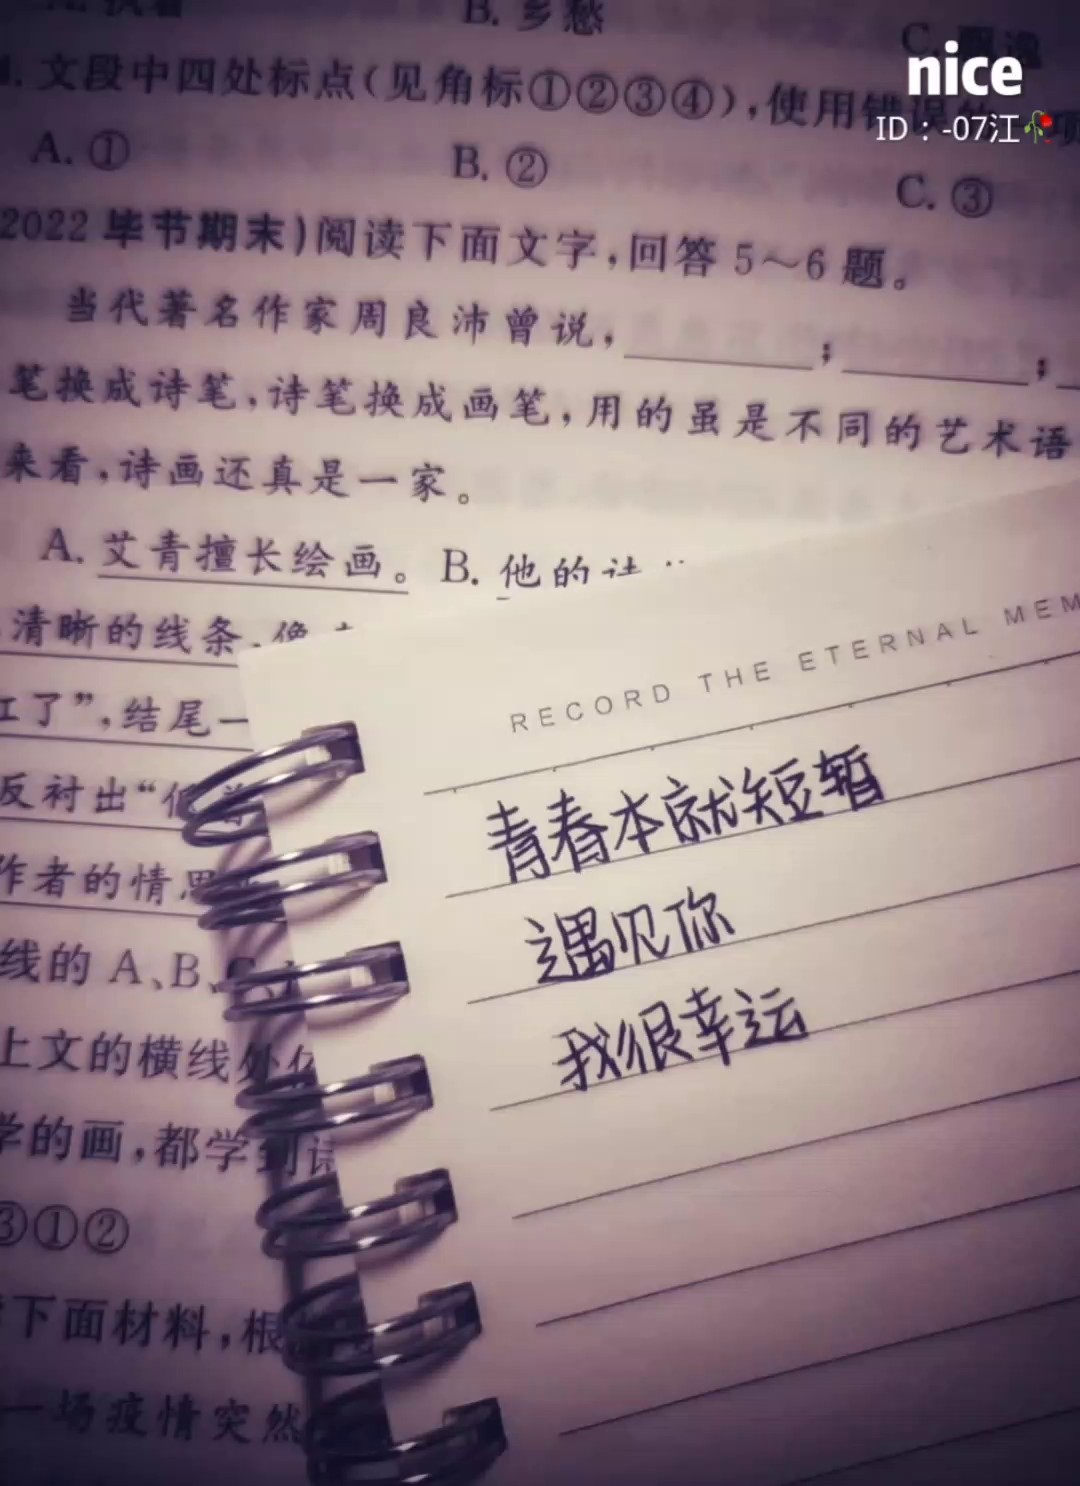 B. 乡愁
nice
ID：-07江
文段中四处标点(见角标①②③④),使用错误的
A. ①
B. ②
C. ③
2022 毕节期末)阅读下面文字,回答 5～6 题。
当代著名作家周良沛曾说,
笔换成诗笔,诗笔换成画笔,用的虽是不同的艺术语
来看,诗画还真是一家。
A. 艾青擅长绘画。 B. 他的
清晰的线条,像
江了”,结尾一
反衬出“
作者的情思
线的 A、B、
上文的横线处
学的画,都学到诗
③①②
下面材料,根
一场疫情突然
RECORD THE ETERNAL MEM
青春本就短暂
遇见你
我很幸运